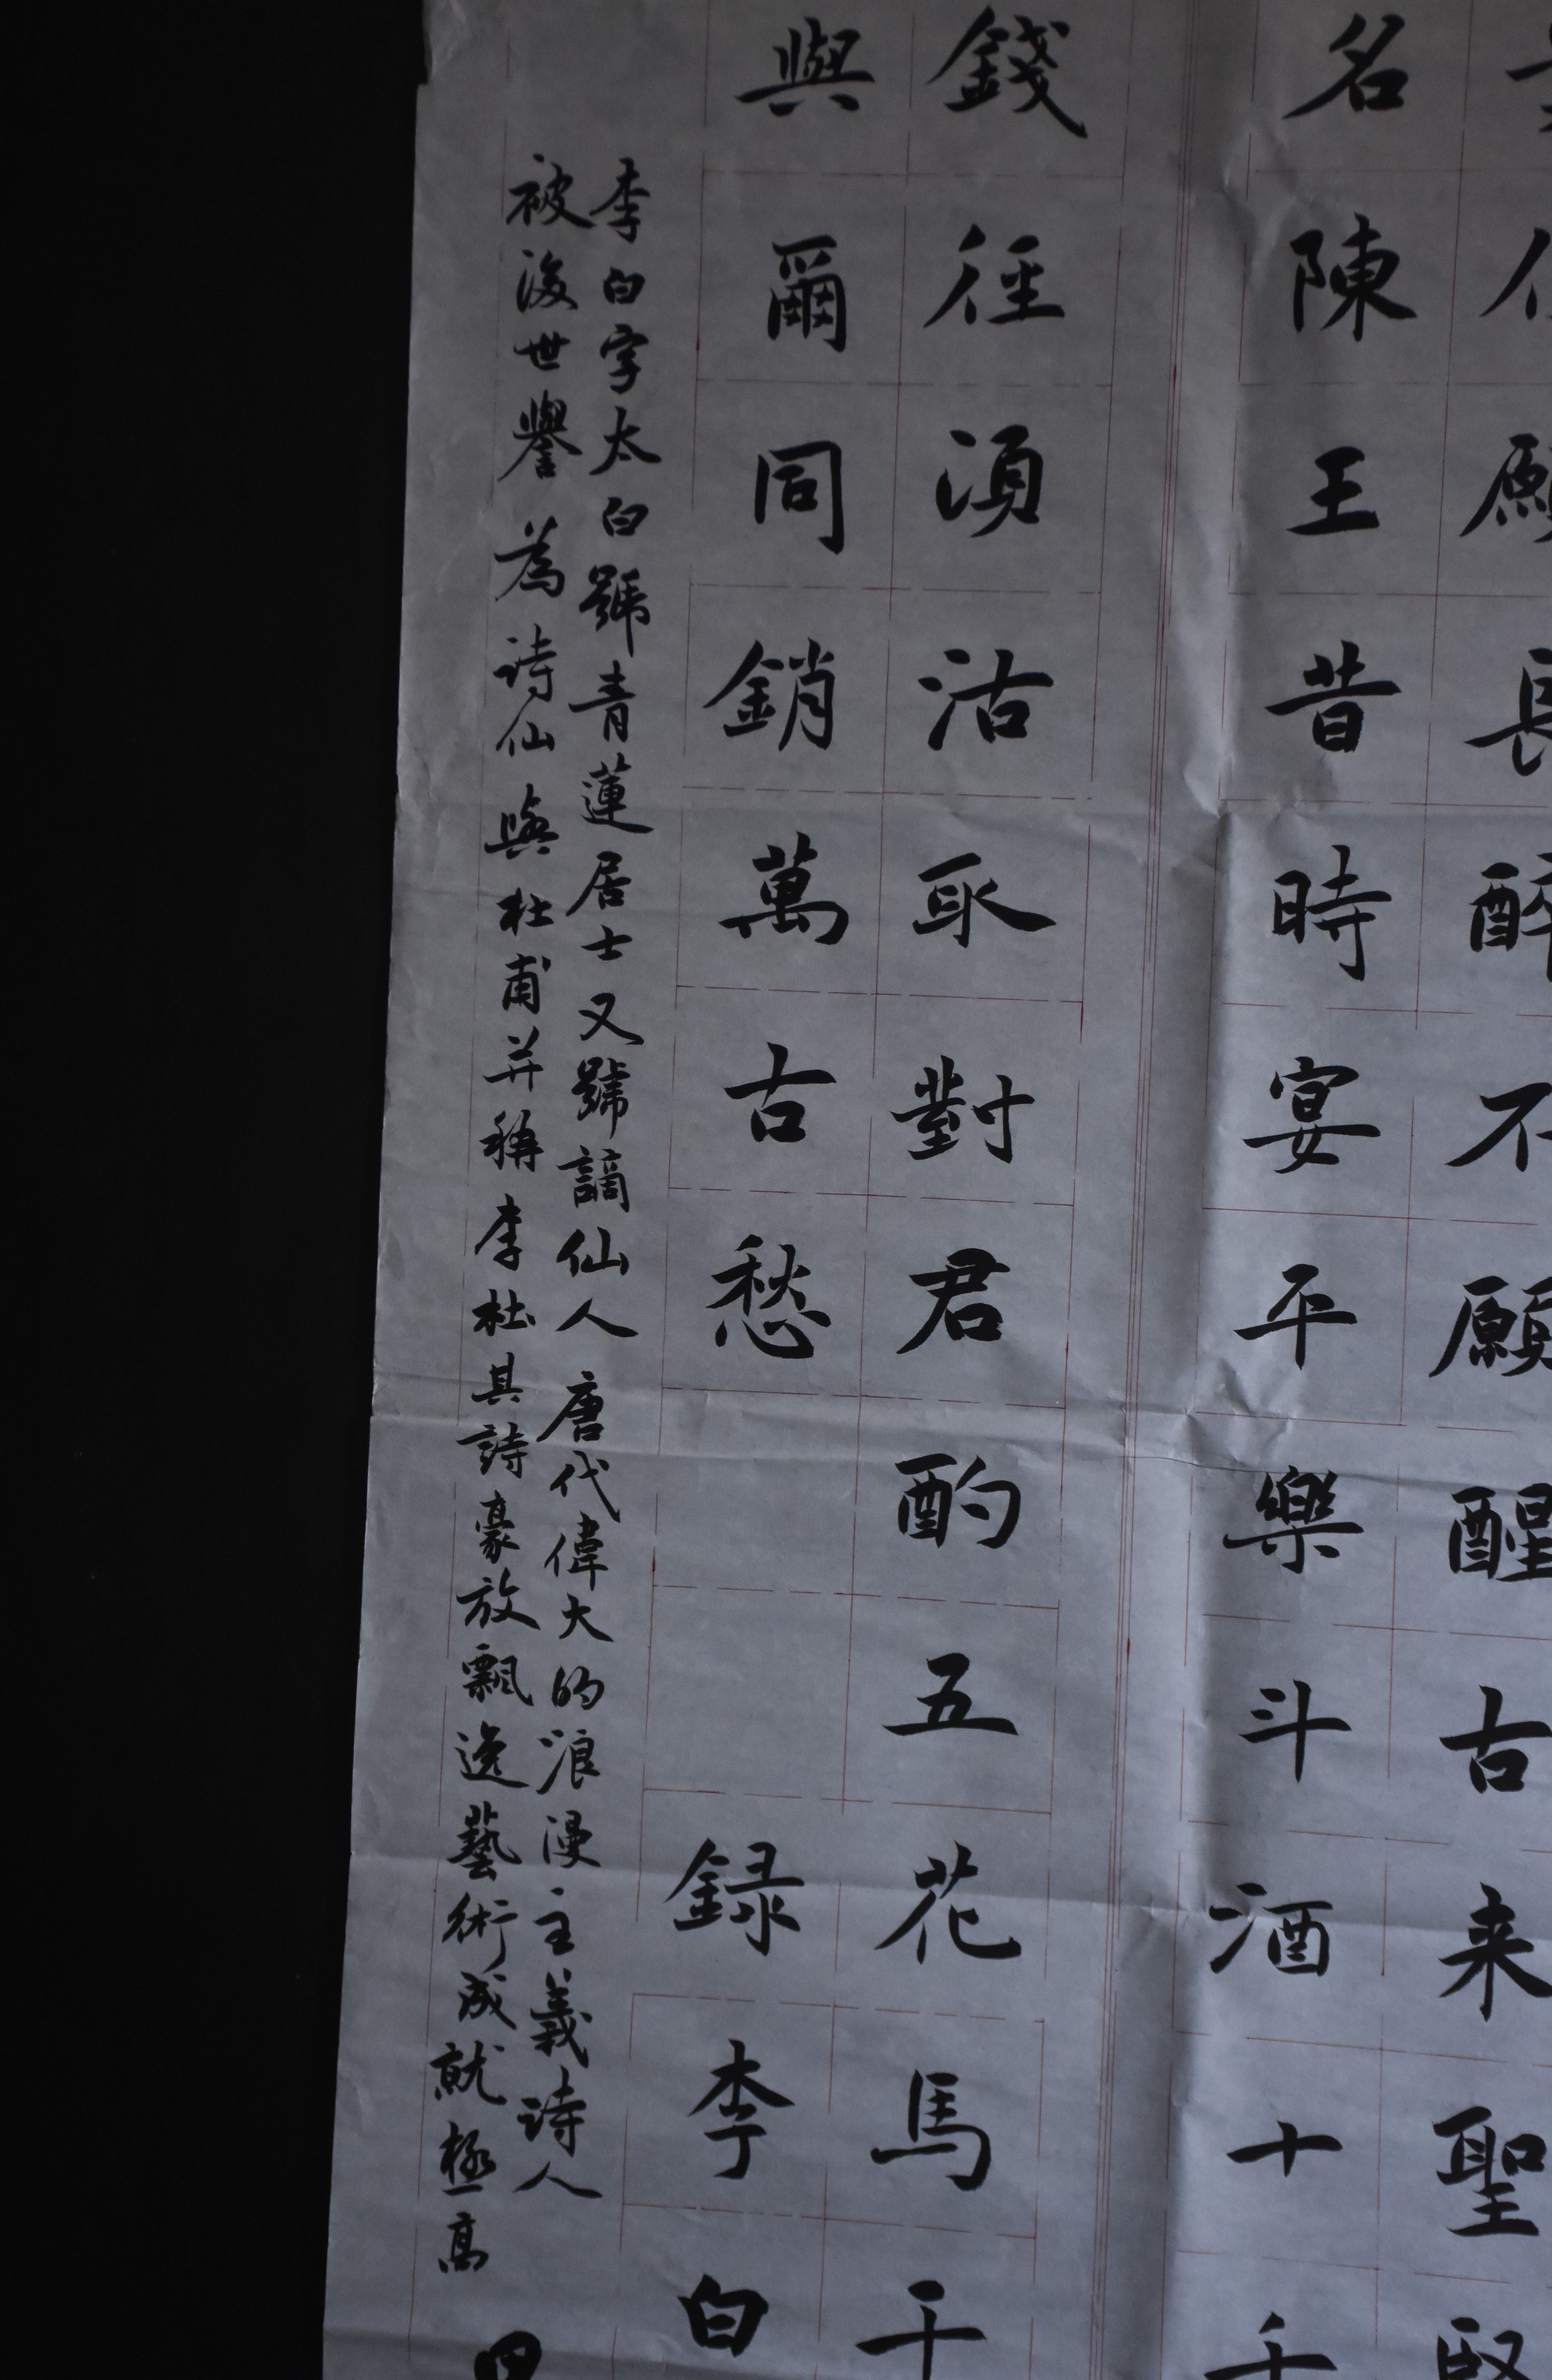 願長醉不願醒古来聖
名陳王昔時宴平樂斗酒十千
錢徑須沽取對君酌五花馬千
與爾同銷萬古愁録李白
李白字太白號青蓮居士又號謫仙人唐代偉大的浪漫主義詩人
被後世譽為詩仙與杜甫并稱李杜其詩豪放飄逸藝術成就極高